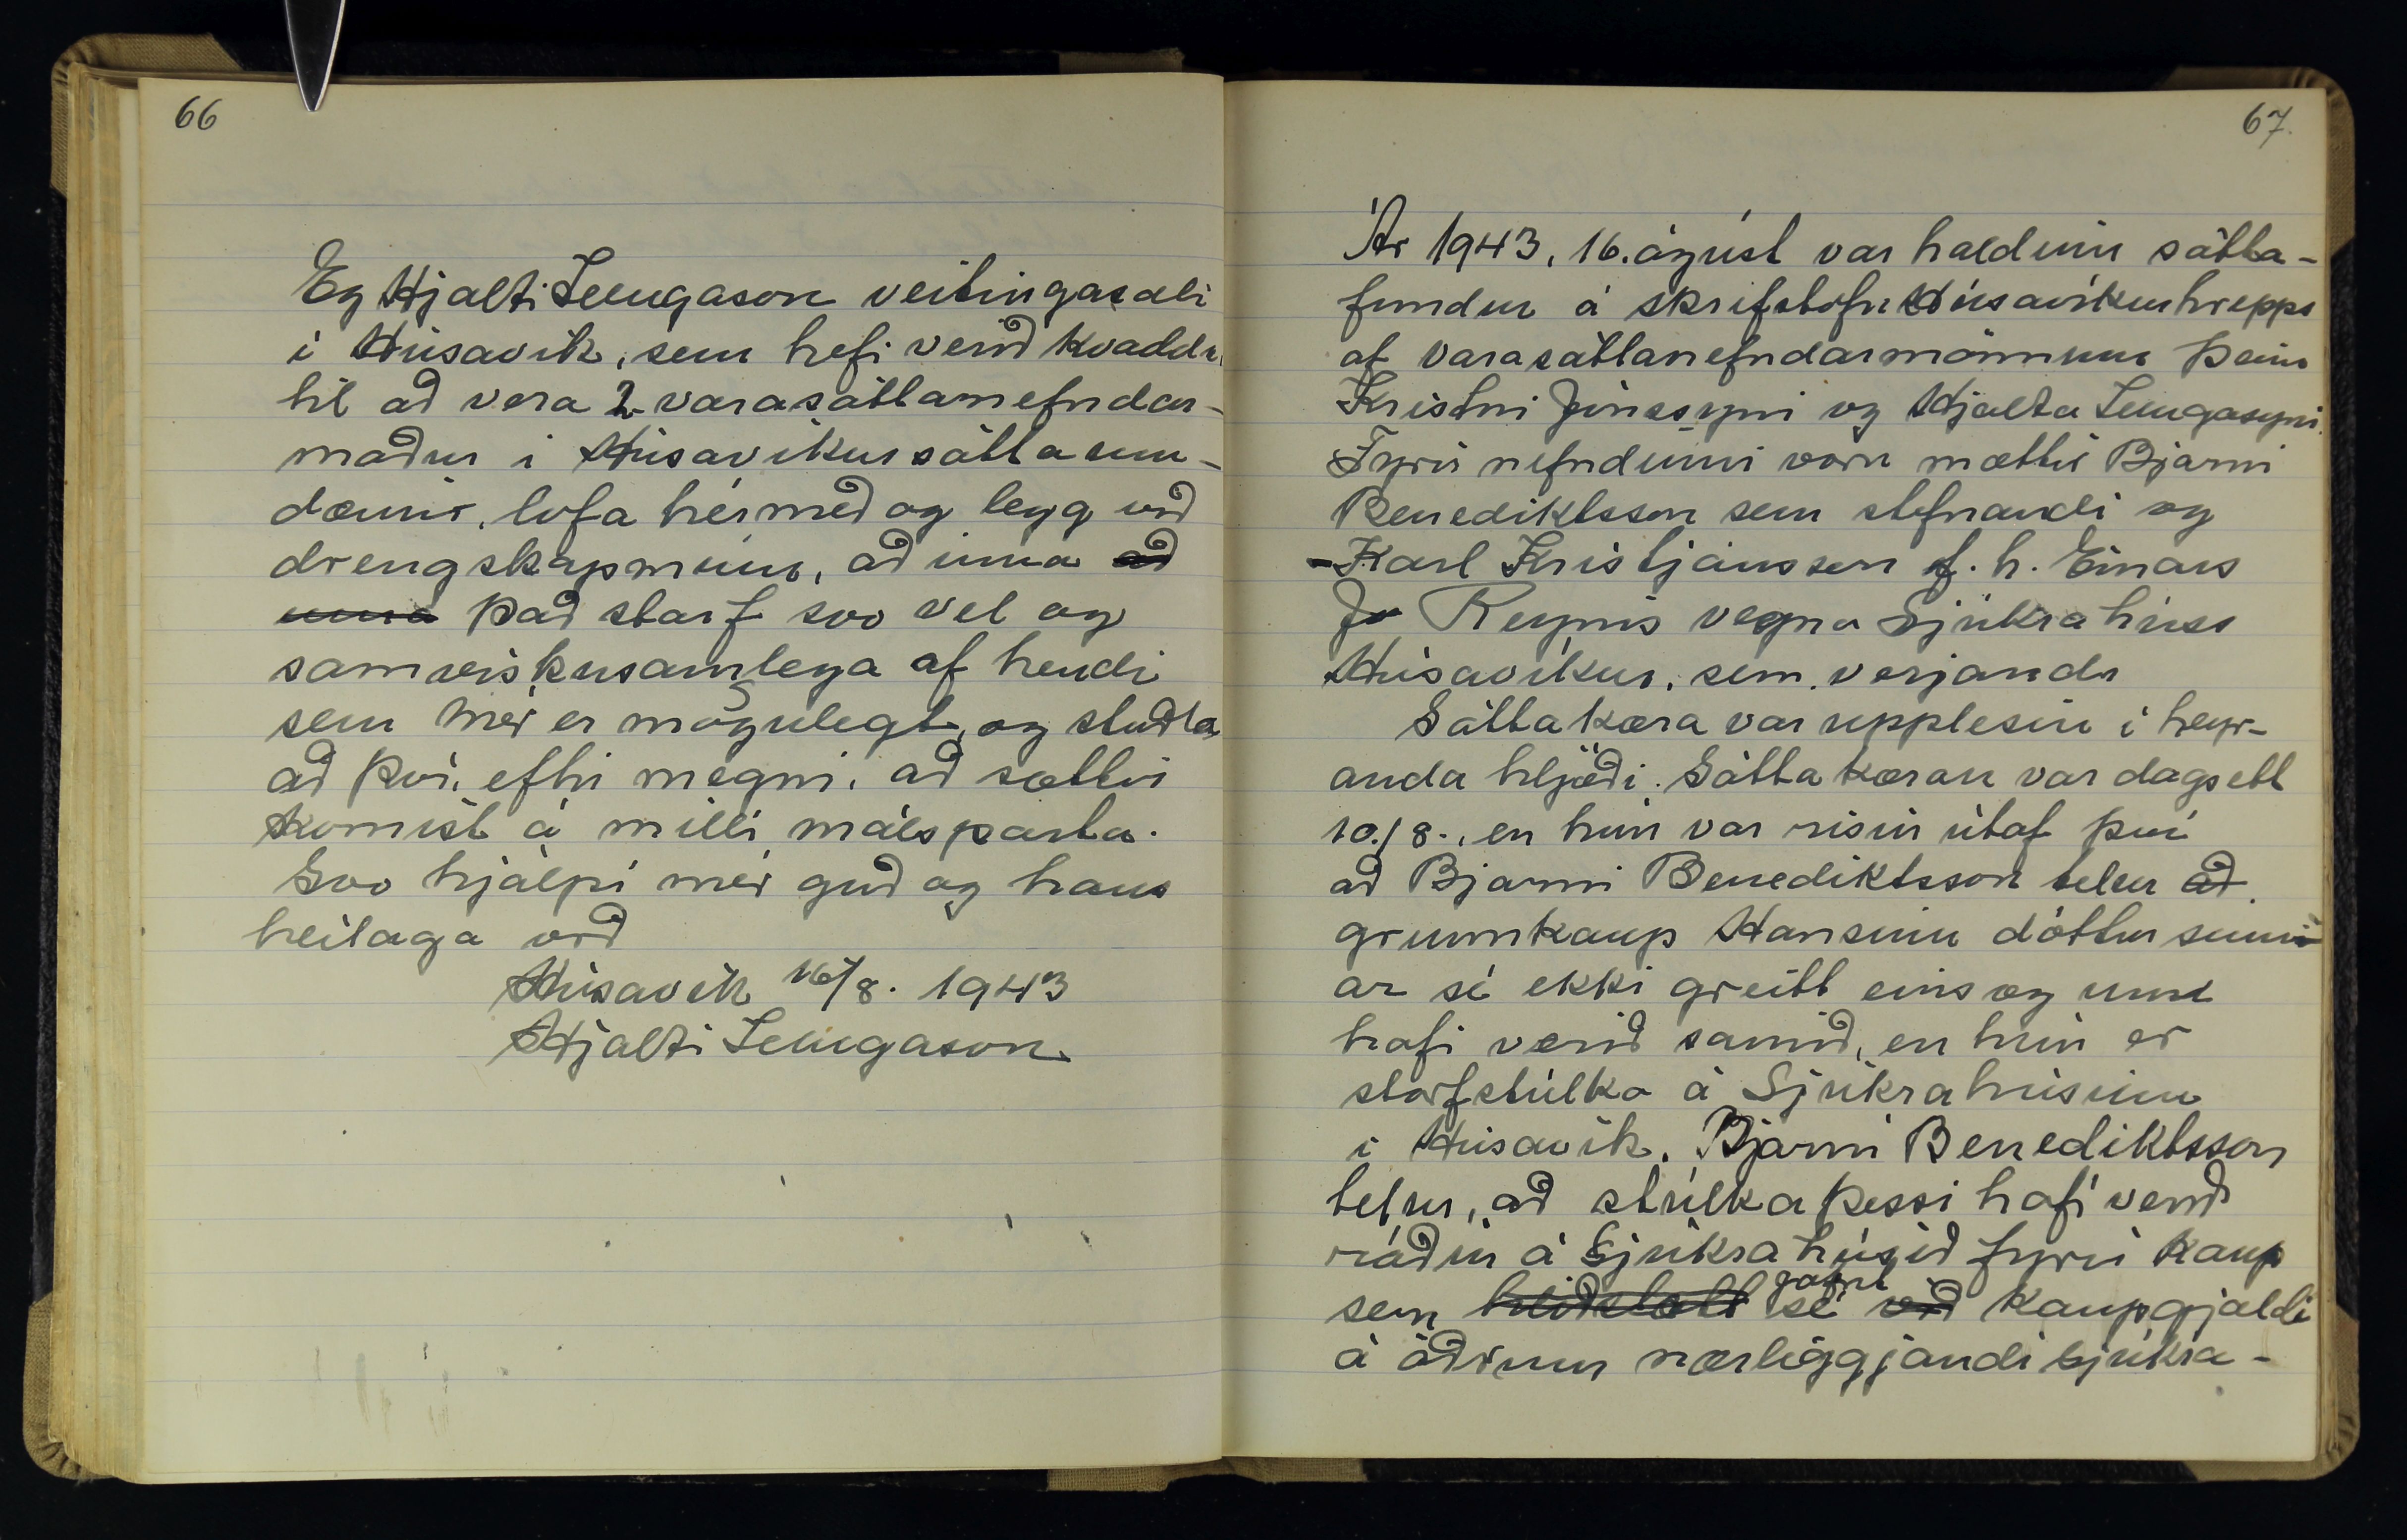 66
Eg Hjalti Illugason veitingasali
í Húsavík, sem hefi verið kvaddur
til að vera 2. varasáttanefndar-
maður í Húsavíkursáttaum-
dæmis, lofa hérmeð og legg við
drengskapminn, að inna að
inna það starf svo vel og
samviskusamlega af hendi
sem mér er mögulegt, og stuðla
að því, eftir megni, að sættir
komist á milli málsparta.
Svo hjálpi mér guð og hans
heilaga orð
Húsavík 16/8. 1943
Hjalti Illugason
67.
Ár 1943, 16. ágúst var haldinn sátta-
fundur á skrifstofu Húsavíkurhrepps
af varasáttanefndarmönnum þeim
Kristni Jónssyni og Hjalta Illugasyni.
Fyrir nefndinni voru mættir Bjarni
Benediktsson sem stefnandi og
-Karl Kristjánsson f. h. Einars
Jo Reynis vegna Sjúkrahúss
Húsavíkur, sem verjandi
Sáttakæra var upplesin í heyr-
anda hljóði. Sáttakæran var dagsett
10./8., en hún var risin útaf því
að Bjarni Benediktsson telur að
grunnkaup Hansínu dóttur sinni
ar sé ekki greitt eins og um
hafi verið samið, en hún er
starfstúlka á Sjúkrahúsinu
í Húsavík. Bjarni Benediktsson
telur, að stúlka þessi hafi verið
ráðin á Sjúkrahúsið fyrir kaup
jafnt
sem hliðstætt sé við kaupgjaldi
á öðrum nærliggjandi sjúkra-